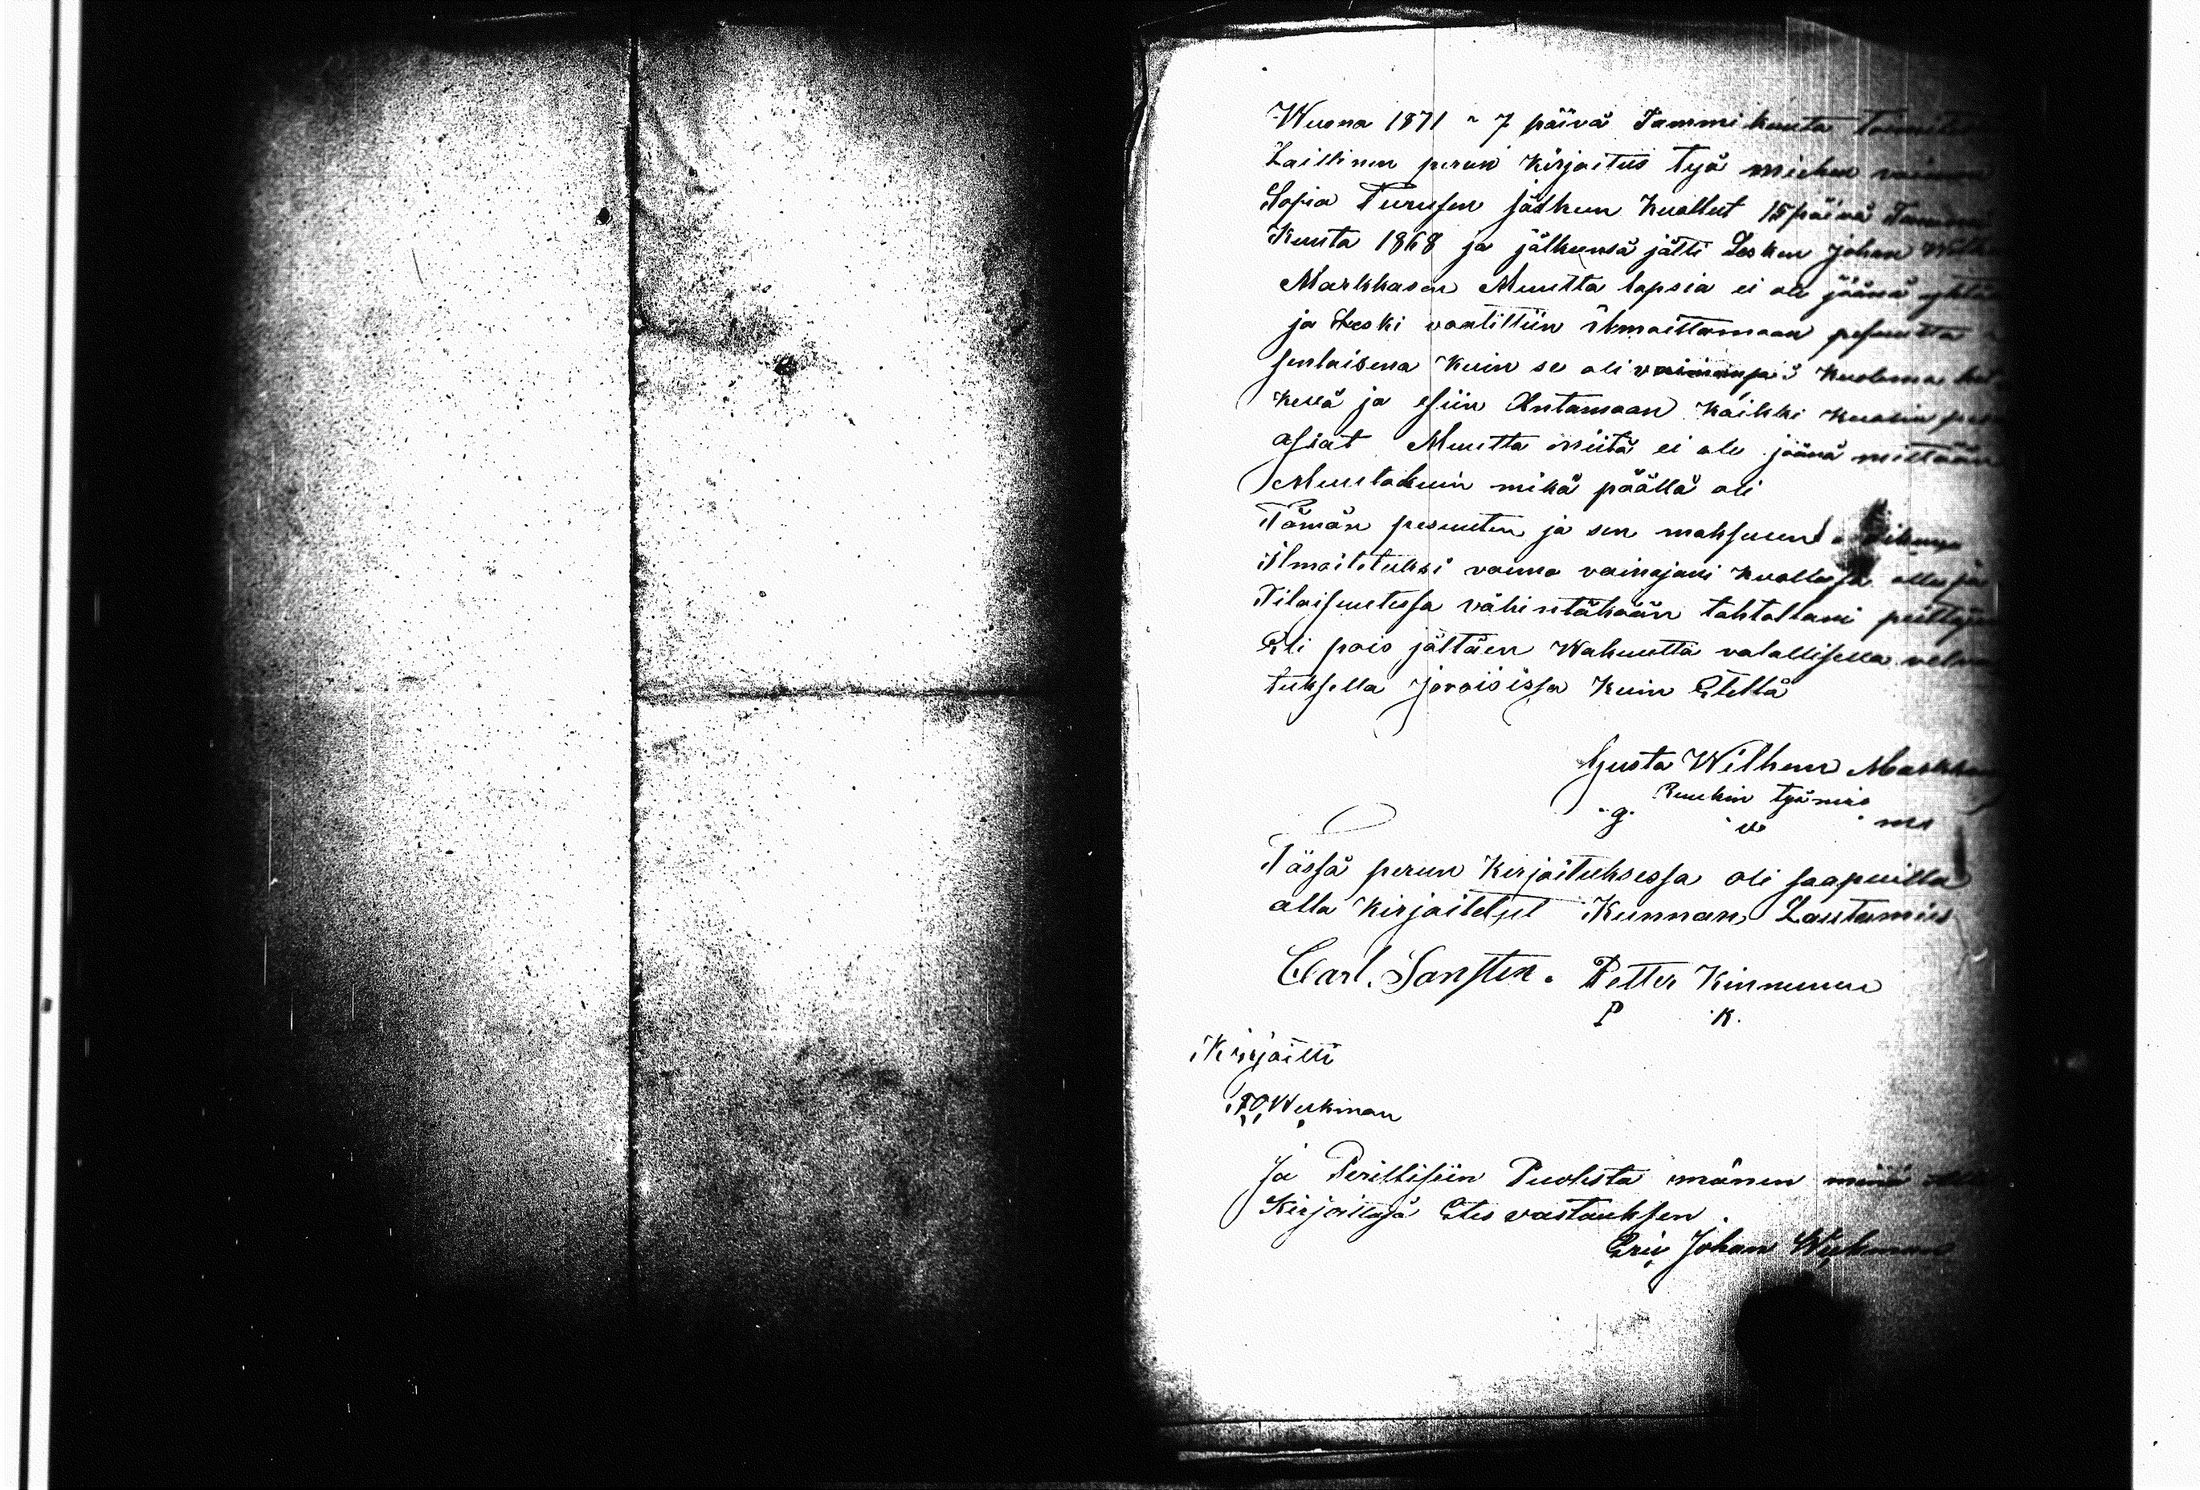 Wuona 1871 n 7 päivä Tammi kuuta
Laillinen perun Kirjoitus työ miehen vaimon
Sofia Turusen jälkeen Kuollut 15 päivä Tammi
Kuuta 1868 ja jälkensä jätti Lesken Johan
Markkasen Muutta lapsia ei ole jäänä
ja Leski vaatittiin ilmoittamaan pesuutta
senlaisena Kuin se oli vaimonsa Kuolema
kesä ja esiin Antamaan Kaikki Kuolin
asiat Muutta niitä ei ole jäänä mittään
Muutakuin mikä päällä oli
Tämän pesuuten ja sen maksuun
ilmoitetuksi vaimo vainajani Kuollessa
Tilaisuutessa vähintäkään tahtallani
Eli pois jättäen Wakuutta valallisella
tuksella joroisissa Kuin Etellä
Gusta Wilhem
Ruukin työmies
g. w ms
Tässä perun Kirjoituksessa oli saapuilla
alla Kirjoitetut Kunnan Lautamies
Carl. Sansten. Petter Kinnunen
P K.
Kirjoitti
Werkman
Ja Perillisiin Puolesta mänen minä
Kirjoittaja Etes vastauksen.
Eric Johan Werkman